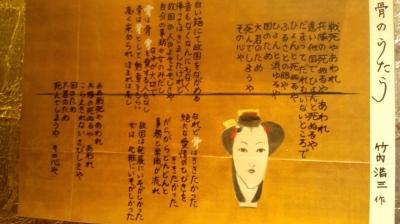 骨のうたう
竹内浩三 作
戦死やあわれ
兵隊の死ぬるや あわれ
遠い他国で ひょんと死ぬるや
だまって だれもいないところで
ひょんと死ぬるや
ふるさとの風や
こいびとの眼や
ひょんと消ゆるや
国のため
大君のため
死んでしまうや
その心や
白い箱にて 故国をながめる
音もなく なんにもなく
帰っては きましたけれど
故国の人のよそよそしさや
自分の事務や女のみだしなみが大切で
骨は骨 骨を愛する人もなし
骨は骨として 勲章をもらい
高く崇められ ほまれは高し
なれど 骨はききたかった
絶大な愛情のひびきを
ききたかった
がらがらどんどんと
事務と常識が流れ
故国は発展にいそがしかった
女は 化粧にいそがしかった
ああ 戦死やあわれ
兵隊の死ぬるや あわれ
こらえきれないさびしさや
国のため
大君のため
死んでしまうや その心や